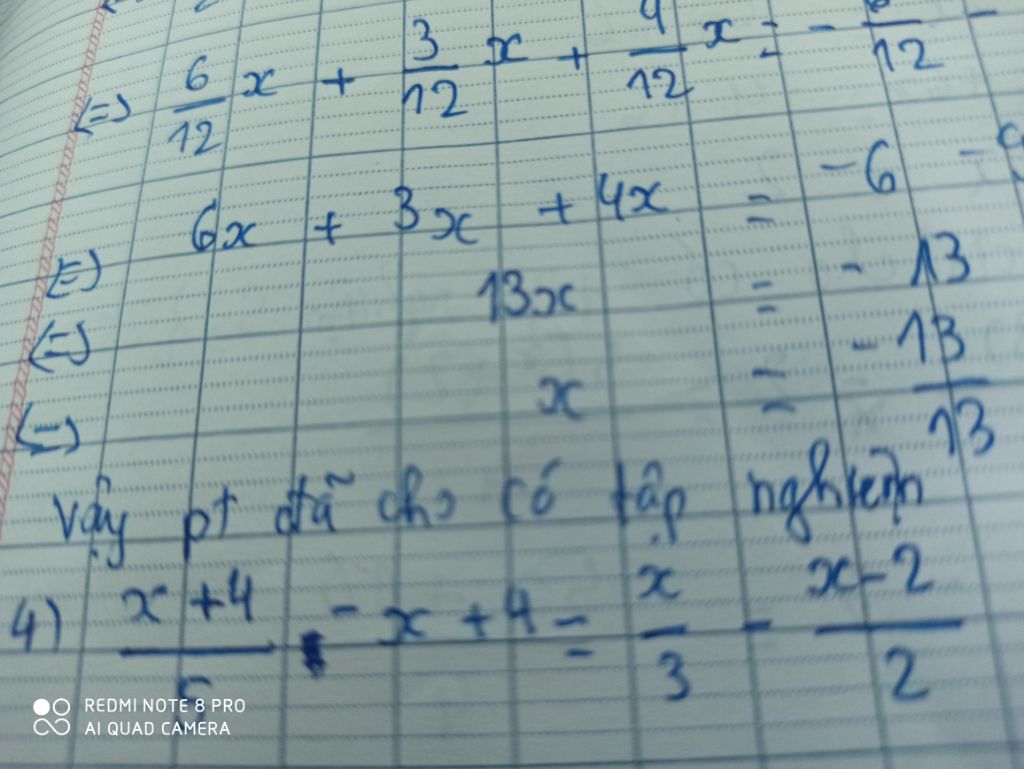 (=) 6/12 x + 3/12 x + 4/12 x = - /12 -
(=) 6x + 3x + 4x = -6 -
(=) 13x = -13
(=) x = -13/13
Vậy pt đã cho có tập nghiệm
4) x+4/5 - x + 4 = x/3 - x-2/2
REDMI NOTE 8 PRO
AI QUAD CAMERA